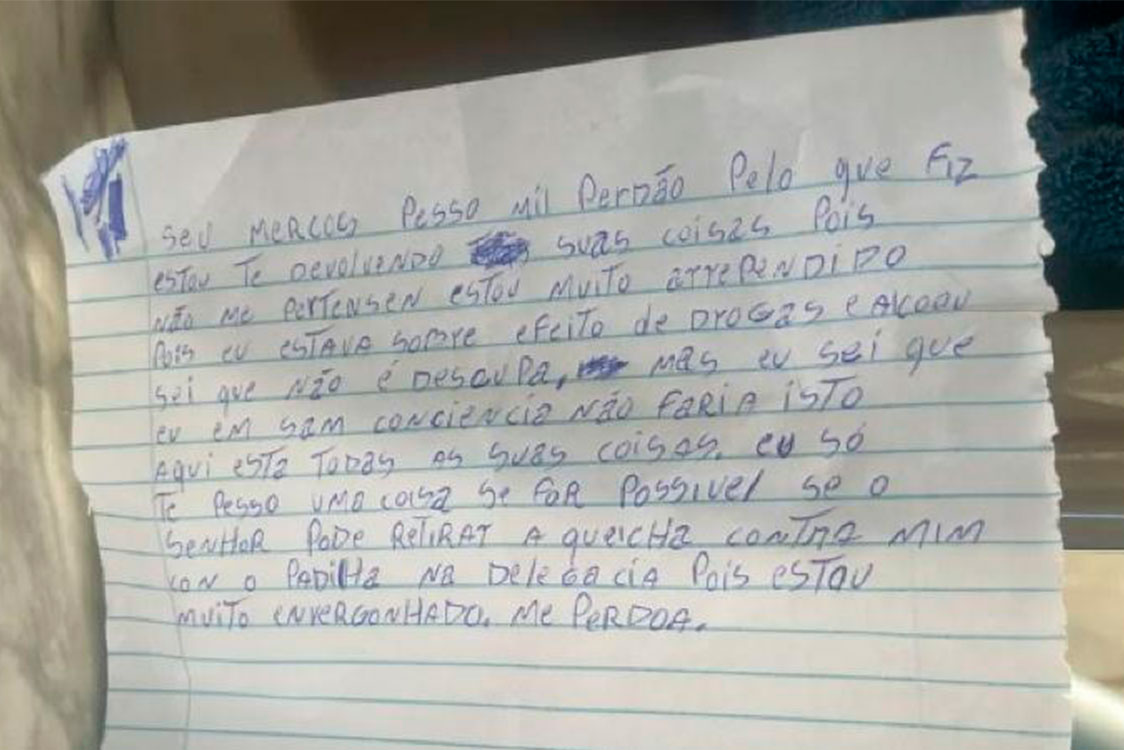 SEU MERCOS PESSO MIL PERDÃO PELO que FIZ
ESTOU TE DEVOLVENDO SUAS COISAS POIS
NÃO ME PERTENSEN ESTOU MUITO ARREPENDIDO
POIS EU ESTAVA SOBRE EFEITO de DROGAS E ALCOOU
SEI que NÃO É DESCUPA, MAS EU SEI que
EU EM SAM CONCIENCIA NÃO FARIA ISTO
AQUI ESTA TODAS AS SUAS COISAS. EU SÓ
TE PESSO UMA COISA SE FOR POSSIVEL SE O
SENHOR PODE RETIRAT A QUEICHA CONTRA MIM
CON O PADILHA NA DELEGACIA POIS ESTOU
MUITO ENVERGONHADO. ME PERDOA.